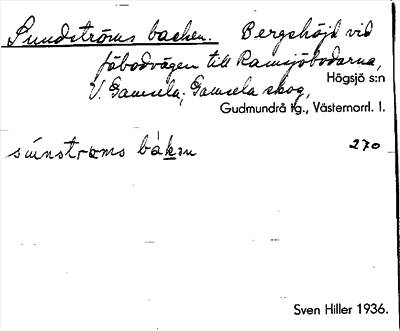 Sundströms backen. Bergshöjd vid
fäbodvägen till Ramsjöbodarna,
V. Gamsela; Gamsela skog,
Högsjö s:n
Gudmundrå tg., Västernorrl. l.
súnstroms bàkɛn 270
Sven Hiller 1936.